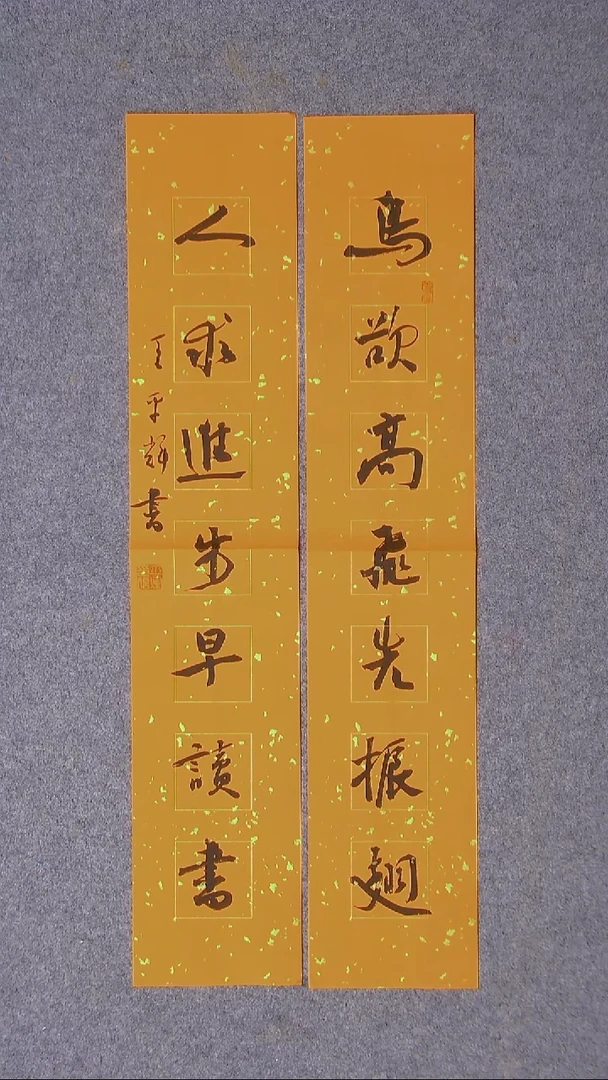 鳥欲高飛先振翅
人求進步早讀書
王平書